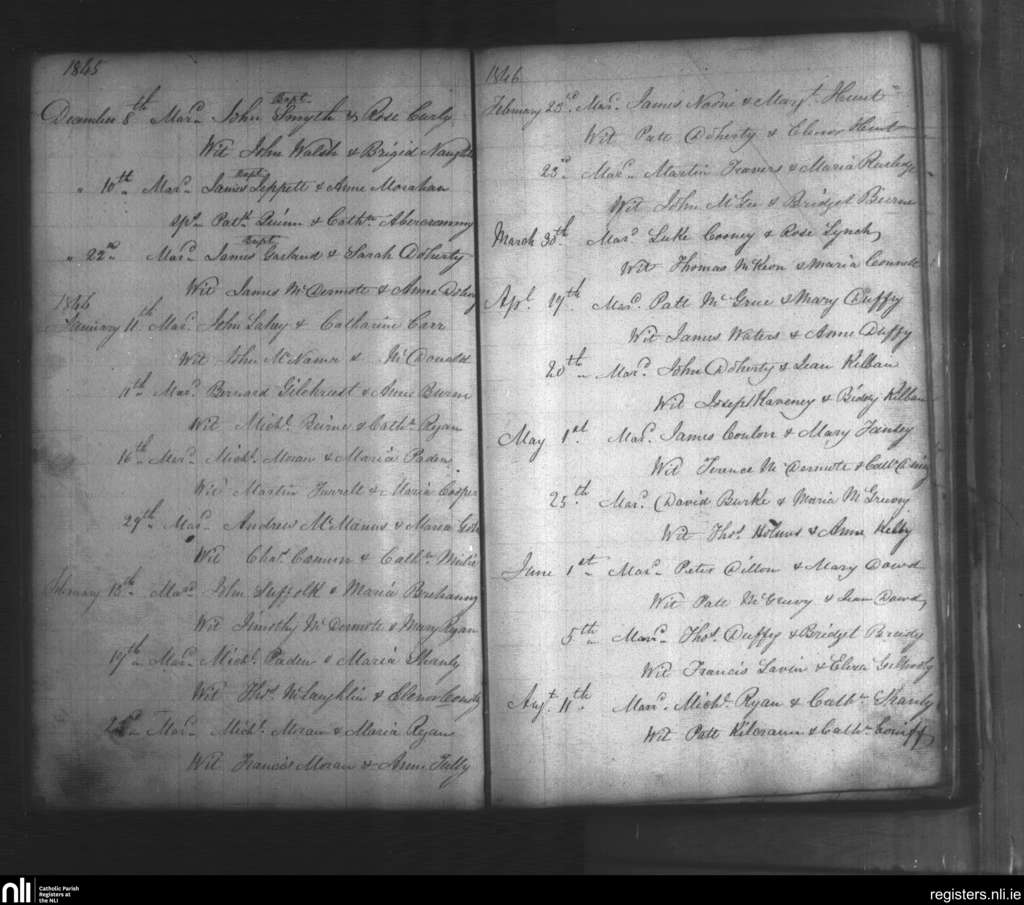 1845
December 8th Mard. John Smyth Bapt & Rose Curly
Wit John Walsh & Brigid Naught
" 10th Mard. James Leppett Bapt & Anne Morahan
Spr. Patk. Quinn & Cathn. Abercrommy
" 22nd Mard. James Garland Bapt & Sarah Doherty
Wit James McDermott & Anne
1846
January 11th Mard. John Lahey & Catharine Carr
Wit John McNama & McDonald
11th Mard. Bernard Gilchriest & Anne Burn
Wit Michl. Beirne & Cathn. Ryan
16th Mard. Michl. Moran & Maria Paden
Wit Martin Farrell & Maria Cosper
29th Mard. Andrew McManus & Maria
Wit Chas. Cannon & Cathn.
February 13th Mard. John Suffolk & Maria Brehanny
Wit Timothy McDermote & Mary Ryan
17th Mard. Michl. Paden & Maria Shanly
Wit Thos. McLaughlin & Elenor
22nd Mard. Michl. Moran & Maria Ryan
Wit Francis Moran & Anne Tully
1846
February 23rd Mard. James Naone & Margt. Hunt
Wit Patt Doherty & Elenor Hunt
23rd Mard. Martin Travers & Maria Rutledge
Wit John McGee & Bridget Beirne
March 30th Mard. Luke Cooney & Rose Lynch
Wit Thomas McKeon & Maria Connell
Apl. 19th Mard. Patt McGrue & Mary Duffy
Wit James Waters & Anne Duffy
20th Mard. John Doherty & Jean Kilban
Wit Joseph Kaveney & Biddy Kilban
May 1st Mard. James Conlon & Mary Fanley
Wit Terence McDermote & Cathn.
25th Mard. David Burke & Maria McGreevy
Wit Thos. Holmes & Anne Kelly
June 1st Mard. Peter Dillon & Mary Dowd
Wit Patt McGreevy & Jean Dowd
5th Mard. Thos. Duffy & Bridget Breidy
Wit Francis Lavin & Eliza
Augt. 11th Mard. Michl. Ryan & Cathn. Shanly
Wit Patt Kilcrann & Cathn. Coniff
nli
Catholic Parish
Registers at
the NLI
registers.nli.ie